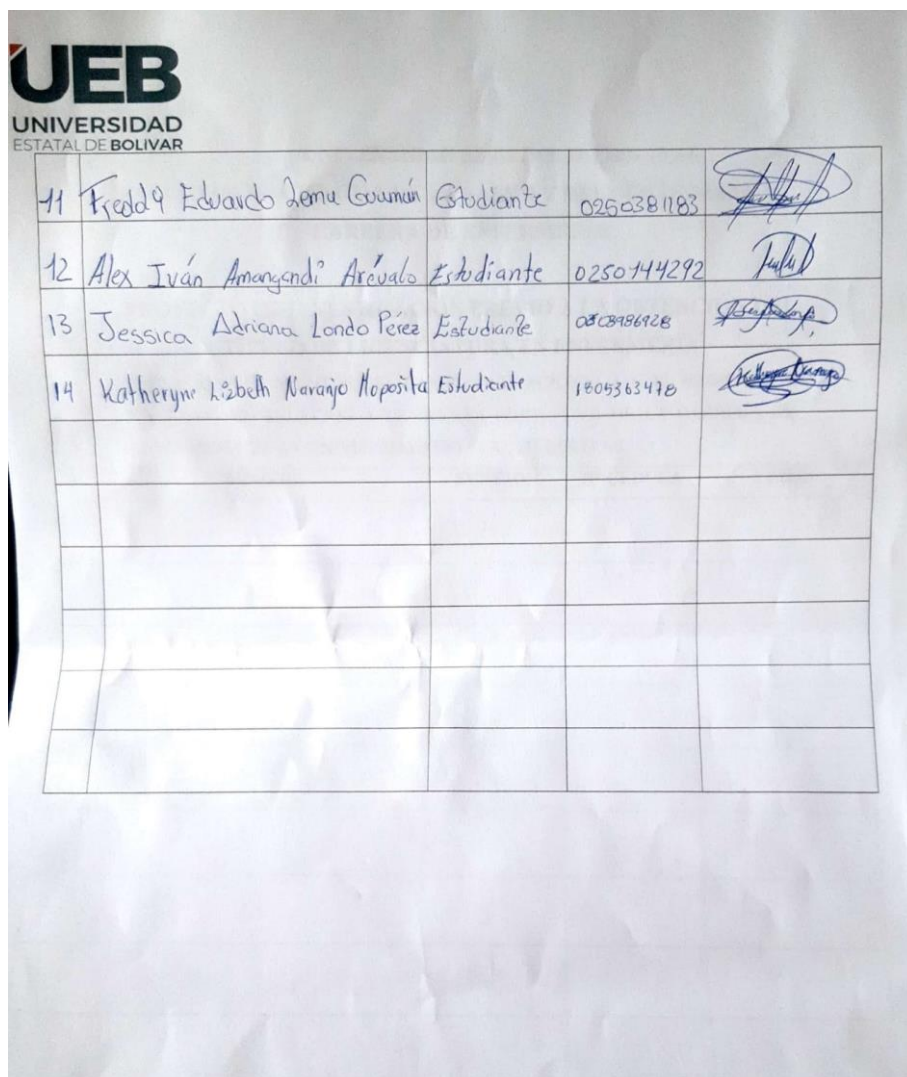 UEB
UNIVERSIDAD
ESTATAL DE BOLIVAR
11 Freddy Eduardo Lema Guamán Estudiante 0250381183
12 Alex Iván Amangandi Arévalo Estudiante 0250144292
13 Jessica Adriana Londo Pérez Estudiante
14 Katheryne Lizbeth Naranjo Moposita Estudiante 1805363478